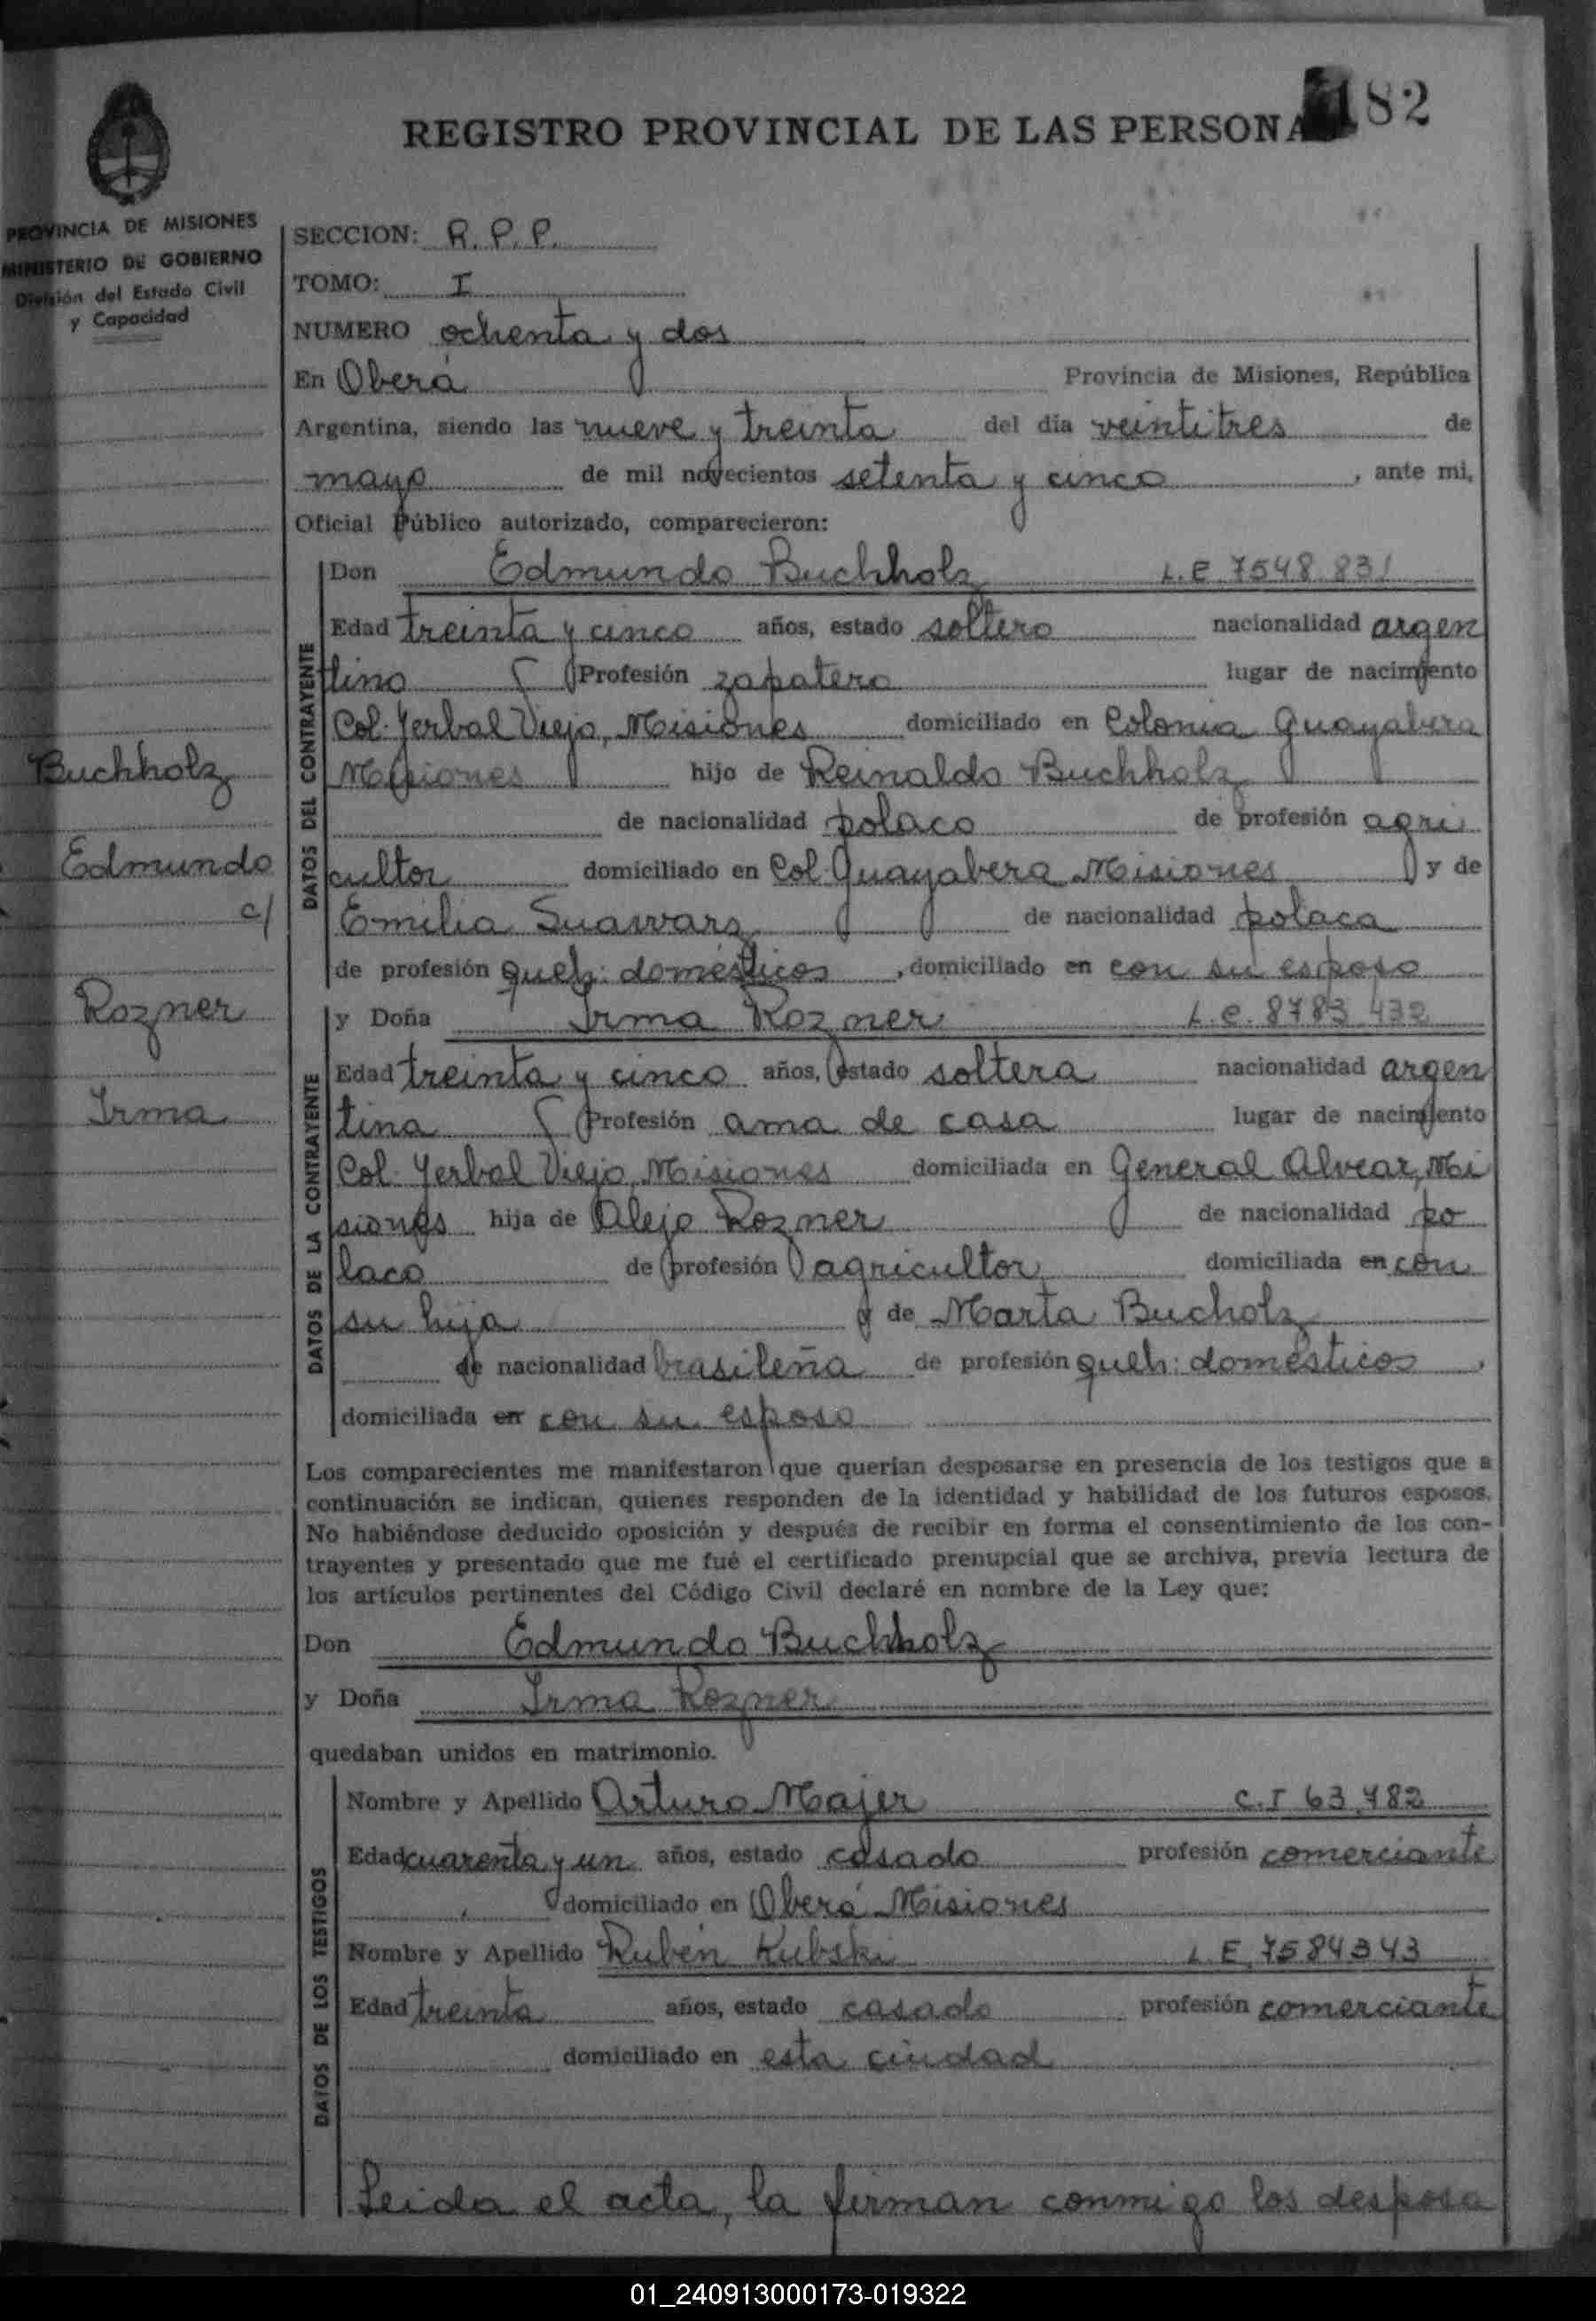 182
REGISTRO PROVINCIAL DE LAS PERSONA
PROVINCIA DE MISIONES
MINISTERIO DE GOBIERNO
División del Estado Civil
y Capacidad
SECCION: R. P. P.
TOMO: I
NUMERO ochenta y dos
En Oberá Provincia de Misiones, República
Argentina, siendo las nueve y treinta del día veintitres de
mayo de mil novecientos setenta y cinco, ante mi,
Oficial Público autorizado, comparecieron:
DATOS DEL CONTRAYENTE
Don Edmundo Buchholz L.E 7548.831
Edad treinta y cinco años, estado soltero nacionalidad argen
tino Profesión zapatero lugar de nacimiento
Col. Yerbal Viejo, Misiones domiciliado en Colonia Guayabera
Misiones hijo de Reinaldo Buchholz
de nacionalidad polaco de profesión agri
cultor domiciliado en Col. Guayabera Misiones y de
Emilia Suawarz de nacionalidad polaca
de profesión queh: domésticos, domiciliado en con su esposo
Buchholz
Edmundo
c/
Rozner
Irma
DATOS DE LA CONTRAYENTE
y Doña Irma Rozner L.C. 8783.432
Edad treinta y cinco años, estado soltera nacionalidad argen
tina Profesión ama de casa lugar de nacimiento
Col. Yerbal Viejo, Misiones domiciliada en General Alvear, Mi
siones hija de Alejo Rozner de nacionalidad po
laco de profesión agricultor domiciliada en con
su hija y de Marta Bucholz
de nacionalidad brasileña de profesión queh: domésticos,
domiciliada en con su esposo
Los comparecientes me manifestaron que querían desposarse en presencia de los testigos que a
continuación se indican, quienes responden de la identidad y habilidad de los futuros esposos.
No habiéndose deducido oposición y después de recibir en forma el consentimiento de los con-
trayentes y presentado que me fué el certificado prenupcial que se archiva, previa lectura de
los artículos pertinentes del Código Civil declaré en nombre de la Ley que:
Don Edmundo Buchholz
y Doña Irma Rozner
quedaban unidos en matrimonio.
DATOS DE LOS TESTIGOS
Nombre y Apellido Arturo Majer C.I 63.482
Edad cuarenta y un años, estado casado profesión comerciante
domiciliado en Oberá Misiones
Nombre y Apellido Rubén Kubski L.E. 7584343
Edad treinta años, estado casado profesión comerciante
domiciliado en esta ciudad
Leida el acta, la firman conmigo los desposa
01_240913000173-019322